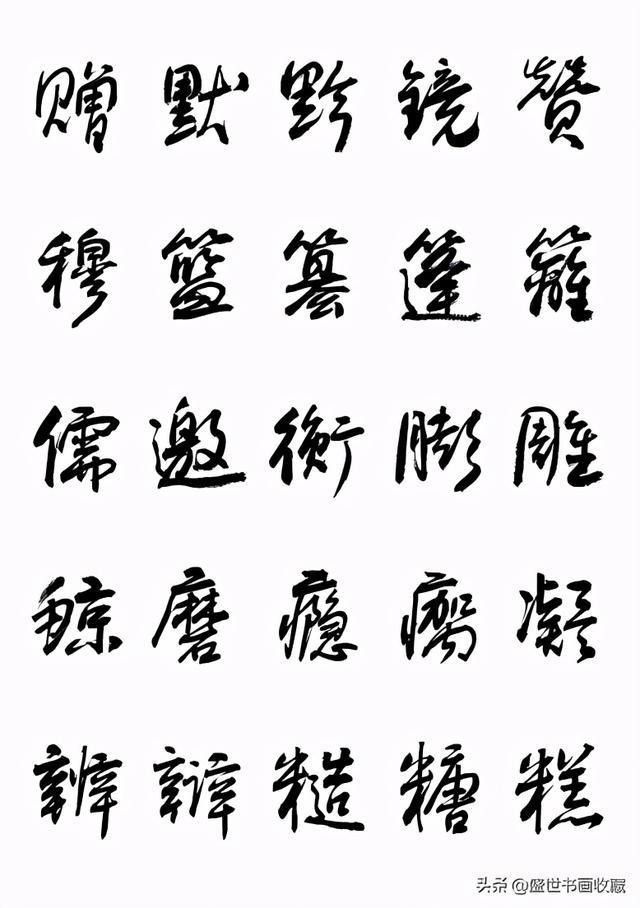 赠默黔镜赞
穆篮篡篷篱
儒邀衡膨雕
鲸磨瘾瘸凝
辨辩糙糖糕
头条 @盛世书画收藏